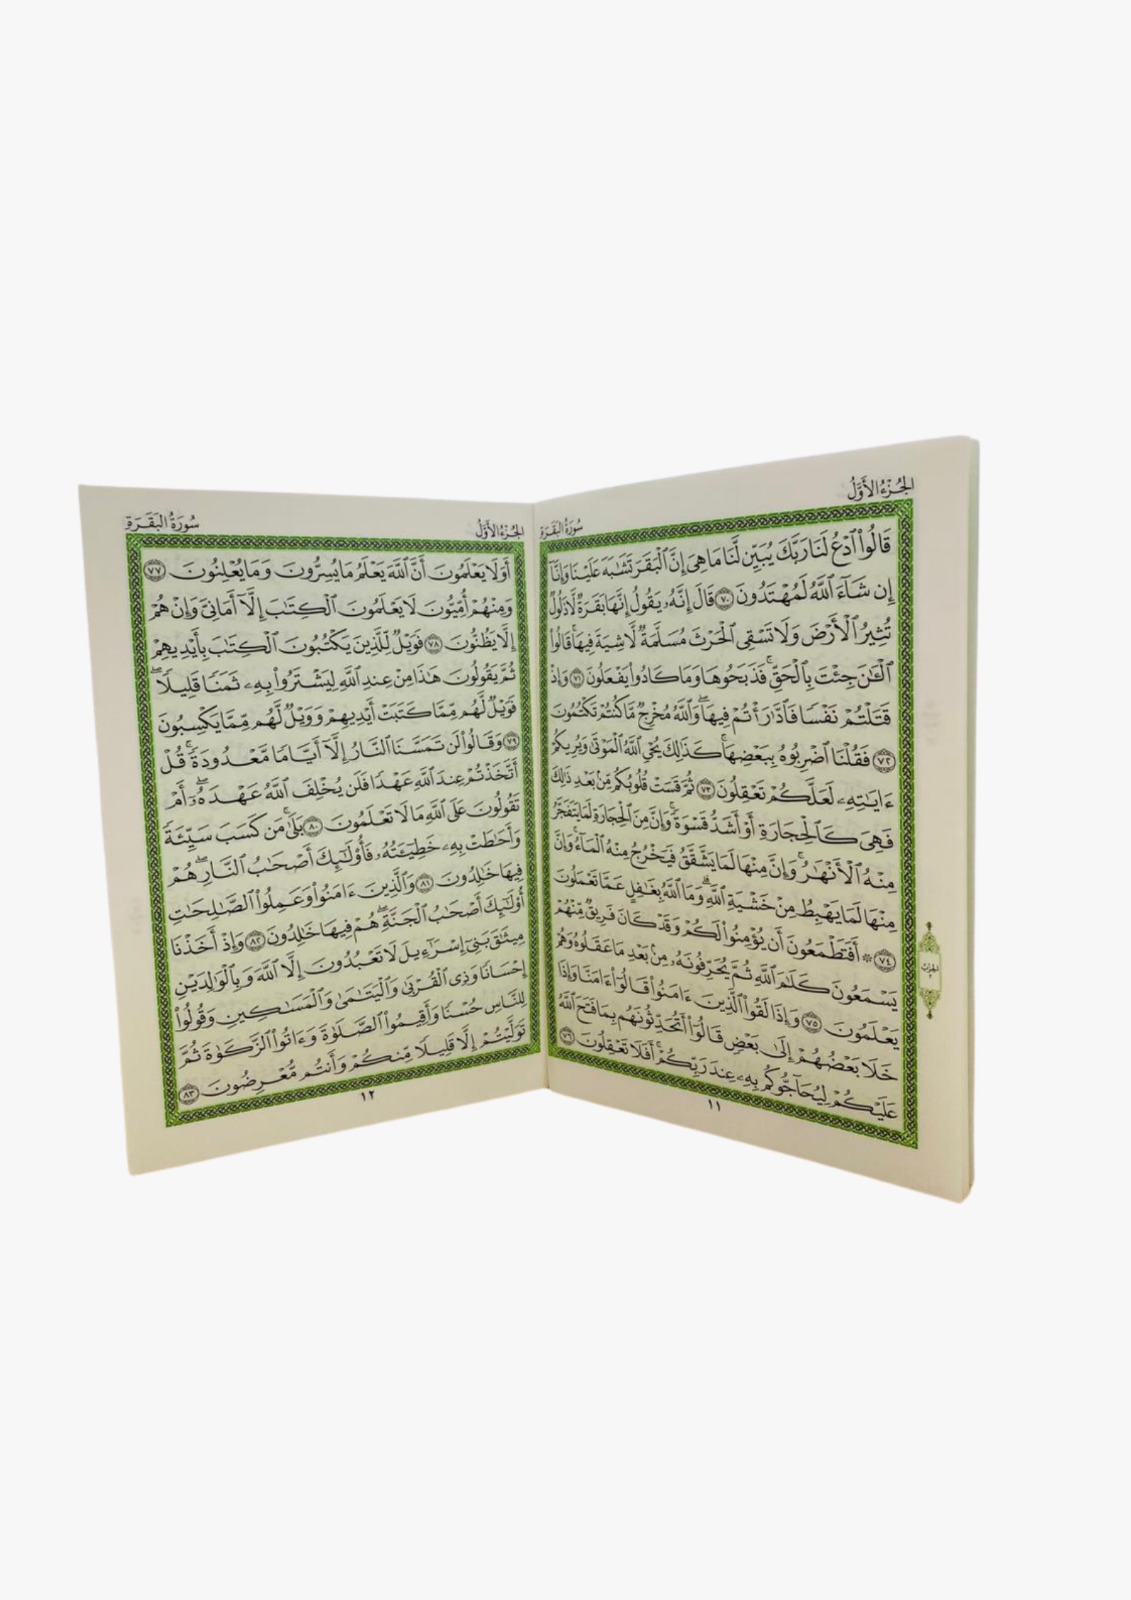 الجُزْءُ الأَوَّلُ
سُورَةُ البَقَرَةِ
قَالُوا۟ ٱدْعُ لَنَا رَبَّكَ يُبَيِّن لَّنَا مَا هِىَ إِنَّ ٱلْبَقَرَ تَشَٰبَهَ عَلَيْنَا وَإِنَّآ
إِن شَآءَ ٱللَّهُ لَمُهْتَدُونَ ٧٠ قَالَ إِنَّهُۥ يَقُولُ إِنَّهَا بَقَرَةٌ لَّا ذَلُولٌ
تُثِيرُ ٱلْأَرْضَ وَلَا تَسْقِى ٱلْحَرْثَ مُسَلَّمَةٌ لَّا شِيَةَ فِيهَا ۚ قَالُوا۟
ٱلْـَٰٔنَ جِئْتَ بِٱلْحَقِّ ۚ فَذَبَحُوهَا وَمَا كَادُوا۟ يَفْعَلُونَ ٧١ وَإِذْ
قَتَلْتُمْ نَفْسًا فَٱدَّٰرَْٰٔتُمْ فِيهَا ۖ وَٱللَّهُ مُخْرِجٌ مَّا كُنتُمْ تَكْتُمُونَ
٧٢ فَقُلْنَا ٱضْرِبُوهُ بِبَعْضِهَا ۚ كَذَٰلِكَ يُحْىِ ٱللَّهُ ٱلْمَوْتَىٰ وَيُرِيكُمْ
ءَايَٰتِهِۦ لَعَلَّكُمْ تَعْقِلُونَ ٧٣ ثُمَّ قَسَتْ قُلُوبُكُم مِّنۢ بَعْدِ ذَٰلِكَ
فَهِىَ كَٱلْحِجَارَةِ أَوْ أَشَدُّ قَسْوَةً ۚ وَإِنَّ مِنَ ٱلْحِجَارَةِ لَمَا يَتَفَجَّرُ
مِنْهُ ٱلْأَنْهَٰرُ ۚ وَإِنَّ مِنْهَا لَمَا يَشَّقَّقُ فَيَخْرُجُ مِنْهُ ٱلْمَآءُ ۚ وَإِنَّ
مِنْهَا لَمَا يَهْبِطُ مِنْ خَشْيَةِ ٱللَّهِ ۗ وَمَا ٱللَّهُ بِغَٰفِلٍ عَمَّا تَعْمَلُونَ
٧٤ ۞ أَفَتَطْمَعُونَ أَن يُؤْمِنُوا۟ لَكُمْ وَقَدْ كَانَ فَرِيقٌ مِّنْهُمْ
يَسْمَعُونَ كَلَٰمَ ٱللَّهِ ثُمَّ يُحَرِّفُونَهُۥ مِنۢ بَعْدِ مَا عَقَلُوهُ وَهُمْ
يَعْلَمُونَ ٧٥ وَإِذَا لَقُوا۟ ٱلَّذِينَ ءَامَنُوا۟ قَالُوٓا۟ ءَامَنَّا وَإِذَا
خَلَا بَعْضُهُمْ إِلَىٰ بَعْضٍ قَالُوٓا۟ أَتُحَدِّثُونَهُم بِمَا فَتَحَ ٱللَّهُ
عَلَيْكُمْ لِيُحَآجُّوكُم بِهِۦ عِندَ رَبِّكُمْ ۚ أَفَلَا تَعْقِلُونَ ٧٦
١١
الجُزْءُ الأَوَّلُ
سُورَةُ البَقَرَةِ
أَوَلَا يَعْلَمُونَ أَنَّ ٱللَّهَ يَعْلَمُ مَا يُسِرُّونَ وَمَا يُعْلِنُونَ ٧٧
وَمِنْهُمْ أُمِّيُّونَ لَا يَعْلَمُونَ ٱلْكِتَٰبَ إِلَّآ أَمَانِىَّ وَإِنْ هُمْ
إِلَّا يَظُنُّونَ ٧٨ فَوَيْلٌ لِّلَّذِينَ يَكْتُبُونَ ٱلْكِتَٰبَ بِأَيْدِيهِمْ
ثُمَّ يَقُولُونَ هَٰذَا مِنْ عِندِ ٱللَّهِ لِيَشْتَرُوا۟ بِهِۦ ثَمَنًا قَلِيلًا ۖ
فَوَيْلٌ لَّهُم مِّمَّا كَتَبَتْ أَيْدِيهِمْ وَوَيْلٌ لَّهُم مِّمَّا يَكْسِبُونَ
٧٩ وَقَالُوا۟ لَن تَمَسَّنَا ٱلنَّارُ إِلَّآ أَيَّامًا مَّعْدُودَةً ۚ قُلْ
أَتَّخَذْتُمْ عِندَ ٱللَّهِ عَهْدًا فَلَن يُخْلِفَ ٱللَّهُ عَهْدَهُۥٓ ۖ أَمْ
تَقُولُونَ عَلَى ٱللَّهِ مَا لَا تَعْلَمُونَ ٨٠ بَلَىٰ ۚ مَن كَسَبَ سَيِّئَةً
وَأَحَٰطَتْ بِهِۦ خَطِيٓـَٔتُهُۥ فَأُو۟لَٰٓئِكَ أَصْحَٰبُ ٱلنَّارِ ۖ هُمْ
فِيهَا خَٰلِدُونَ ٨١ وَٱلَّذِينَ ءَامَنُوا۟ وَعَمِلُوا۟ ٱلصَّٰلِحَٰتِ
أُو۟لَٰٓئِكَ أَصْحَٰبُ ٱلْجَنَّةِ ۖ هُمْ فِيهَا خَٰلِدُونَ ٨٢ وَإِذْ أَخَذْنَا
مِيثَٰقَ بَنِىٓ إِسْرَٰٓءِيلَ لَا تَعْبُدُونَ إِلَّا ٱللَّهَ وَبِٱلْوَٰلِدَيْنِ
إِحْسَانًا وَذِى ٱلْقُرْبَىٰ وَٱلْيَتَٰمَىٰ وَٱلْمَسَٰكِينِ وَقُولُوا۟
لِلنَّاسِ حُسْنًا وَأَقِيمُوا۟ ٱلصَّلَوٰةَ وَءَاتُوا۟ ٱلزَّكَوٰةَ ثُمَّ
تَوَلَّيْتُمْ إِلَّا قَلِيلًا مِّنكُمْ وَأَنتُم مُّعْرِضُونَ ٨٣
١٢